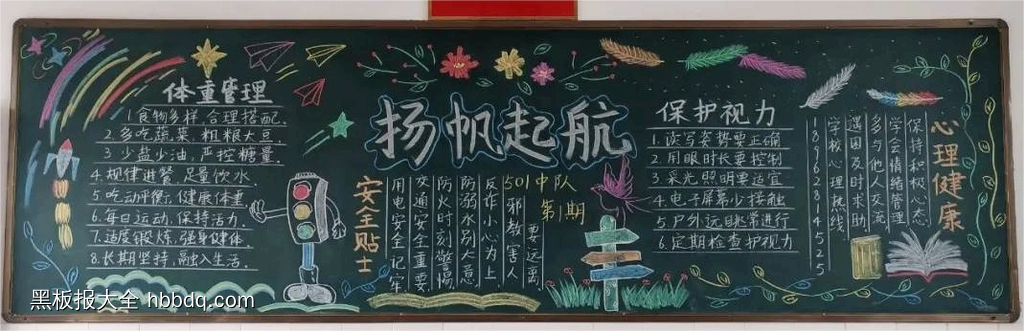 体重管理
1.食物多样 合理搭配.
2.多吃蔬菜 粗粮大豆.
3.少盐少油,严控糖量.
4.规律进餐 足量饮水.
5.吃动平衡,健康体重.
6.每日运动,保持活力.
7.适度锻炼,强身健体.
8.长期坚持,融入生活.
扬帆起航
501中队
第 期
安全贴士
用电安全记牢
交通安全重要
防火时刻警惕
防溺水别大意
反诈小心为上
邪教害人
要远离
保护视力
1.读写姿势要正确
2.用眼时长要控制
3.采光照明要适宜
4.电子屏幕少接触
5.户外远眺常进行
6.定期检查护视力
心理健康
保持积极心态
学会情绪管理
多与他人交流
遇困及时求助
学校心理热线
18962884525
黑板报大全 hbbdq.com